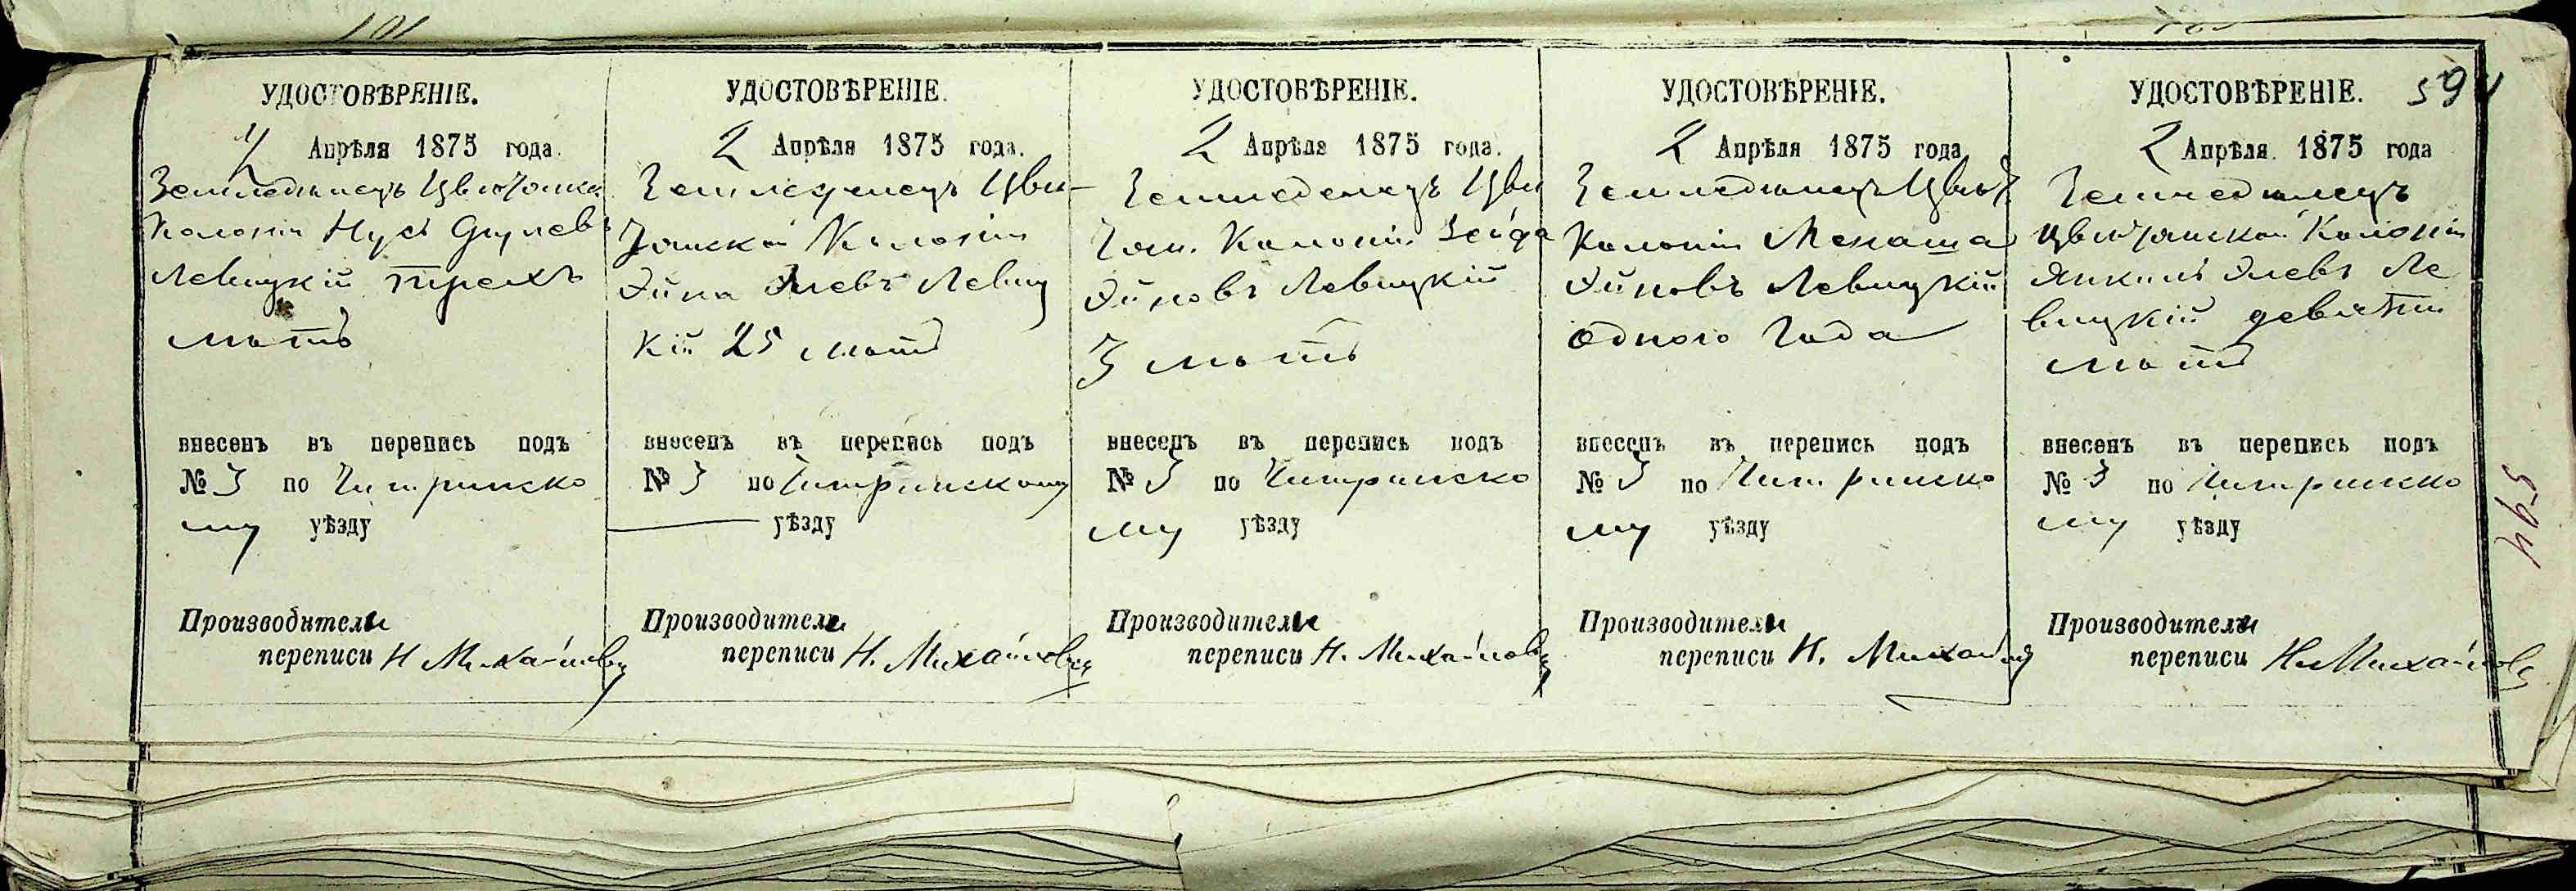 594
УДОСТОВѢРЕНІЕ.
2 Апрѣля 1875 года.
Земледѣлецъ Цвитянск.
Колоніи Нусь
Левицкій трехъ
лѣтъ
внесенъ въ перепись подъ
№ 3 по Чигринско
му уѣзду
Производители
переписи Н Михайловъ
УДОСТОВѢРЕНІЕ.
2 Апрѣля 1875 года.
Земледѣлецъ Цви-
тянской Колоніи
Эйна Элевъ Левиц
кій 25 лѣтъ
внесенъ въ перепись подъ
№ 3 по Чигринскому
уѣзду
Производители
переписи Н. Михайловъ
УДОСТОВѢРЕНІЕ.
2 Апрѣля 1875 года.
Земледѣлецъ Цви
тян. Колоніи Зейда
Эйновъ Левицкій
3 лѣтъ
внесенъ въ перепись подъ
№ 3 по Чигринско
му уѣзду
Производители
переписи Н. Михайловъ
УДОСТОВѢРЕНІЕ.
2 Апрѣля 1875 года
Земледѣлецъ Цвит.
Колоніи Менаша
Эйновъ Левицкій
одного Года
внесенъ въ перепись подъ
№ 3 по Чигринско
му уѣзду
Производители
переписи Н. Михайловъ
УДОСТОВѢРЕНІЕ.
2 Апрѣля 1875 года
Земледѣлецъ
Цвитянской Колоніи
Янкель Элевъ Ле
вицкій девяти
лѣтъ
внесенъ въ перепись подъ
№ 3 по Чигринско
му уѣзду
Производители
переписи Н. Михайловъ
594